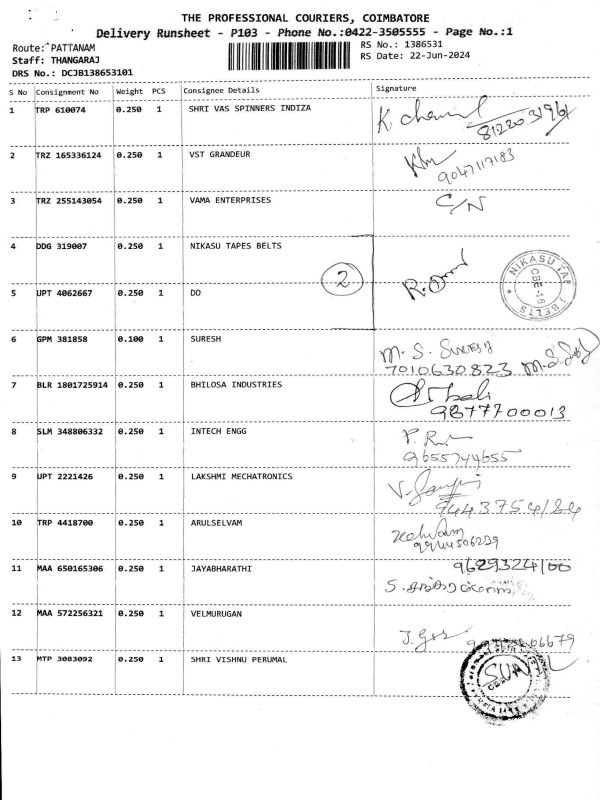 THE PROFESSIONAL COURIERS, COIMBATORE
Delivery Runsheet - P103 - Phone No.:0422-3505555 - Page No.:1
Route: PATTANAM
RS No.: 1386531
Staff: THANGARAJ
RS Date: 22-Jun-2024
DRS No.: DCJB138653101
S No Consignment No Weight PCS Consignee Details Signature
1 TRP 610074 0.250 1 SHRI VAS SPINNERS INDIZA
8122031961
2 TRZ 165336124 0.250 1 VST GRANDEUR
9047117183
3 TRZ 255143054 0.250 1 VAMA ENTERPRISES C/N
4 DDG 319007 0.250 1 NIKASU TAPES BELTS
2
NIKASU TAP BELTS
CBE-16
5 UPT 4062667 0.250 1 DO
6 GPM 381858 0.100 1 SURESH
M. S. Suresh
7010630823
7 BLR 1801725914 0.250 1 BHILOSA INDUSTRIES
9877700013
8 SLM 348806332 0.250 1 INTECH ENGG
9655744655
9 UPT 2221426 0.250 1 LAKSHMI MECHATRONICS
9443754184
10 TRP 4418700 0.250 1 ARULSELVAM
11 MAA 650165306 0.250 1 JAYABHARATHI 9629324100
12 MAA 572256321 0.250 1 VELMURUGAN
13 MTP 3083092 0.250 1 SHRI VISHNU PERUMAL